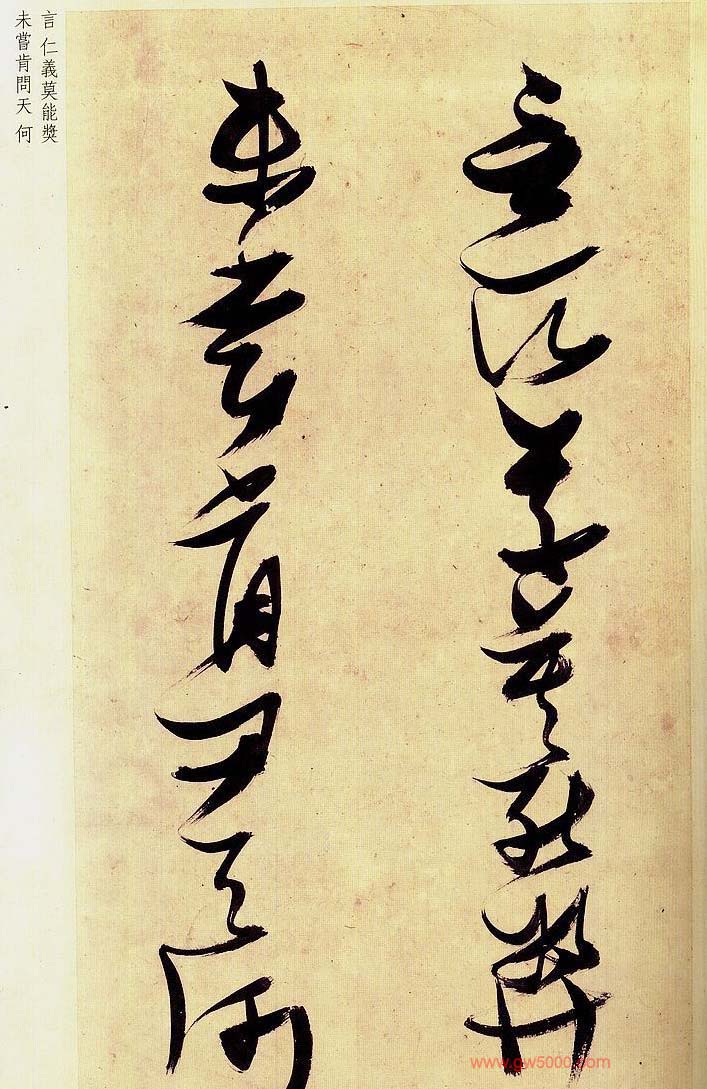 言仁義莫能獎
未嘗肯問天何
言仁義莫能獎
未嘗肯問天何
www.gw5000.com